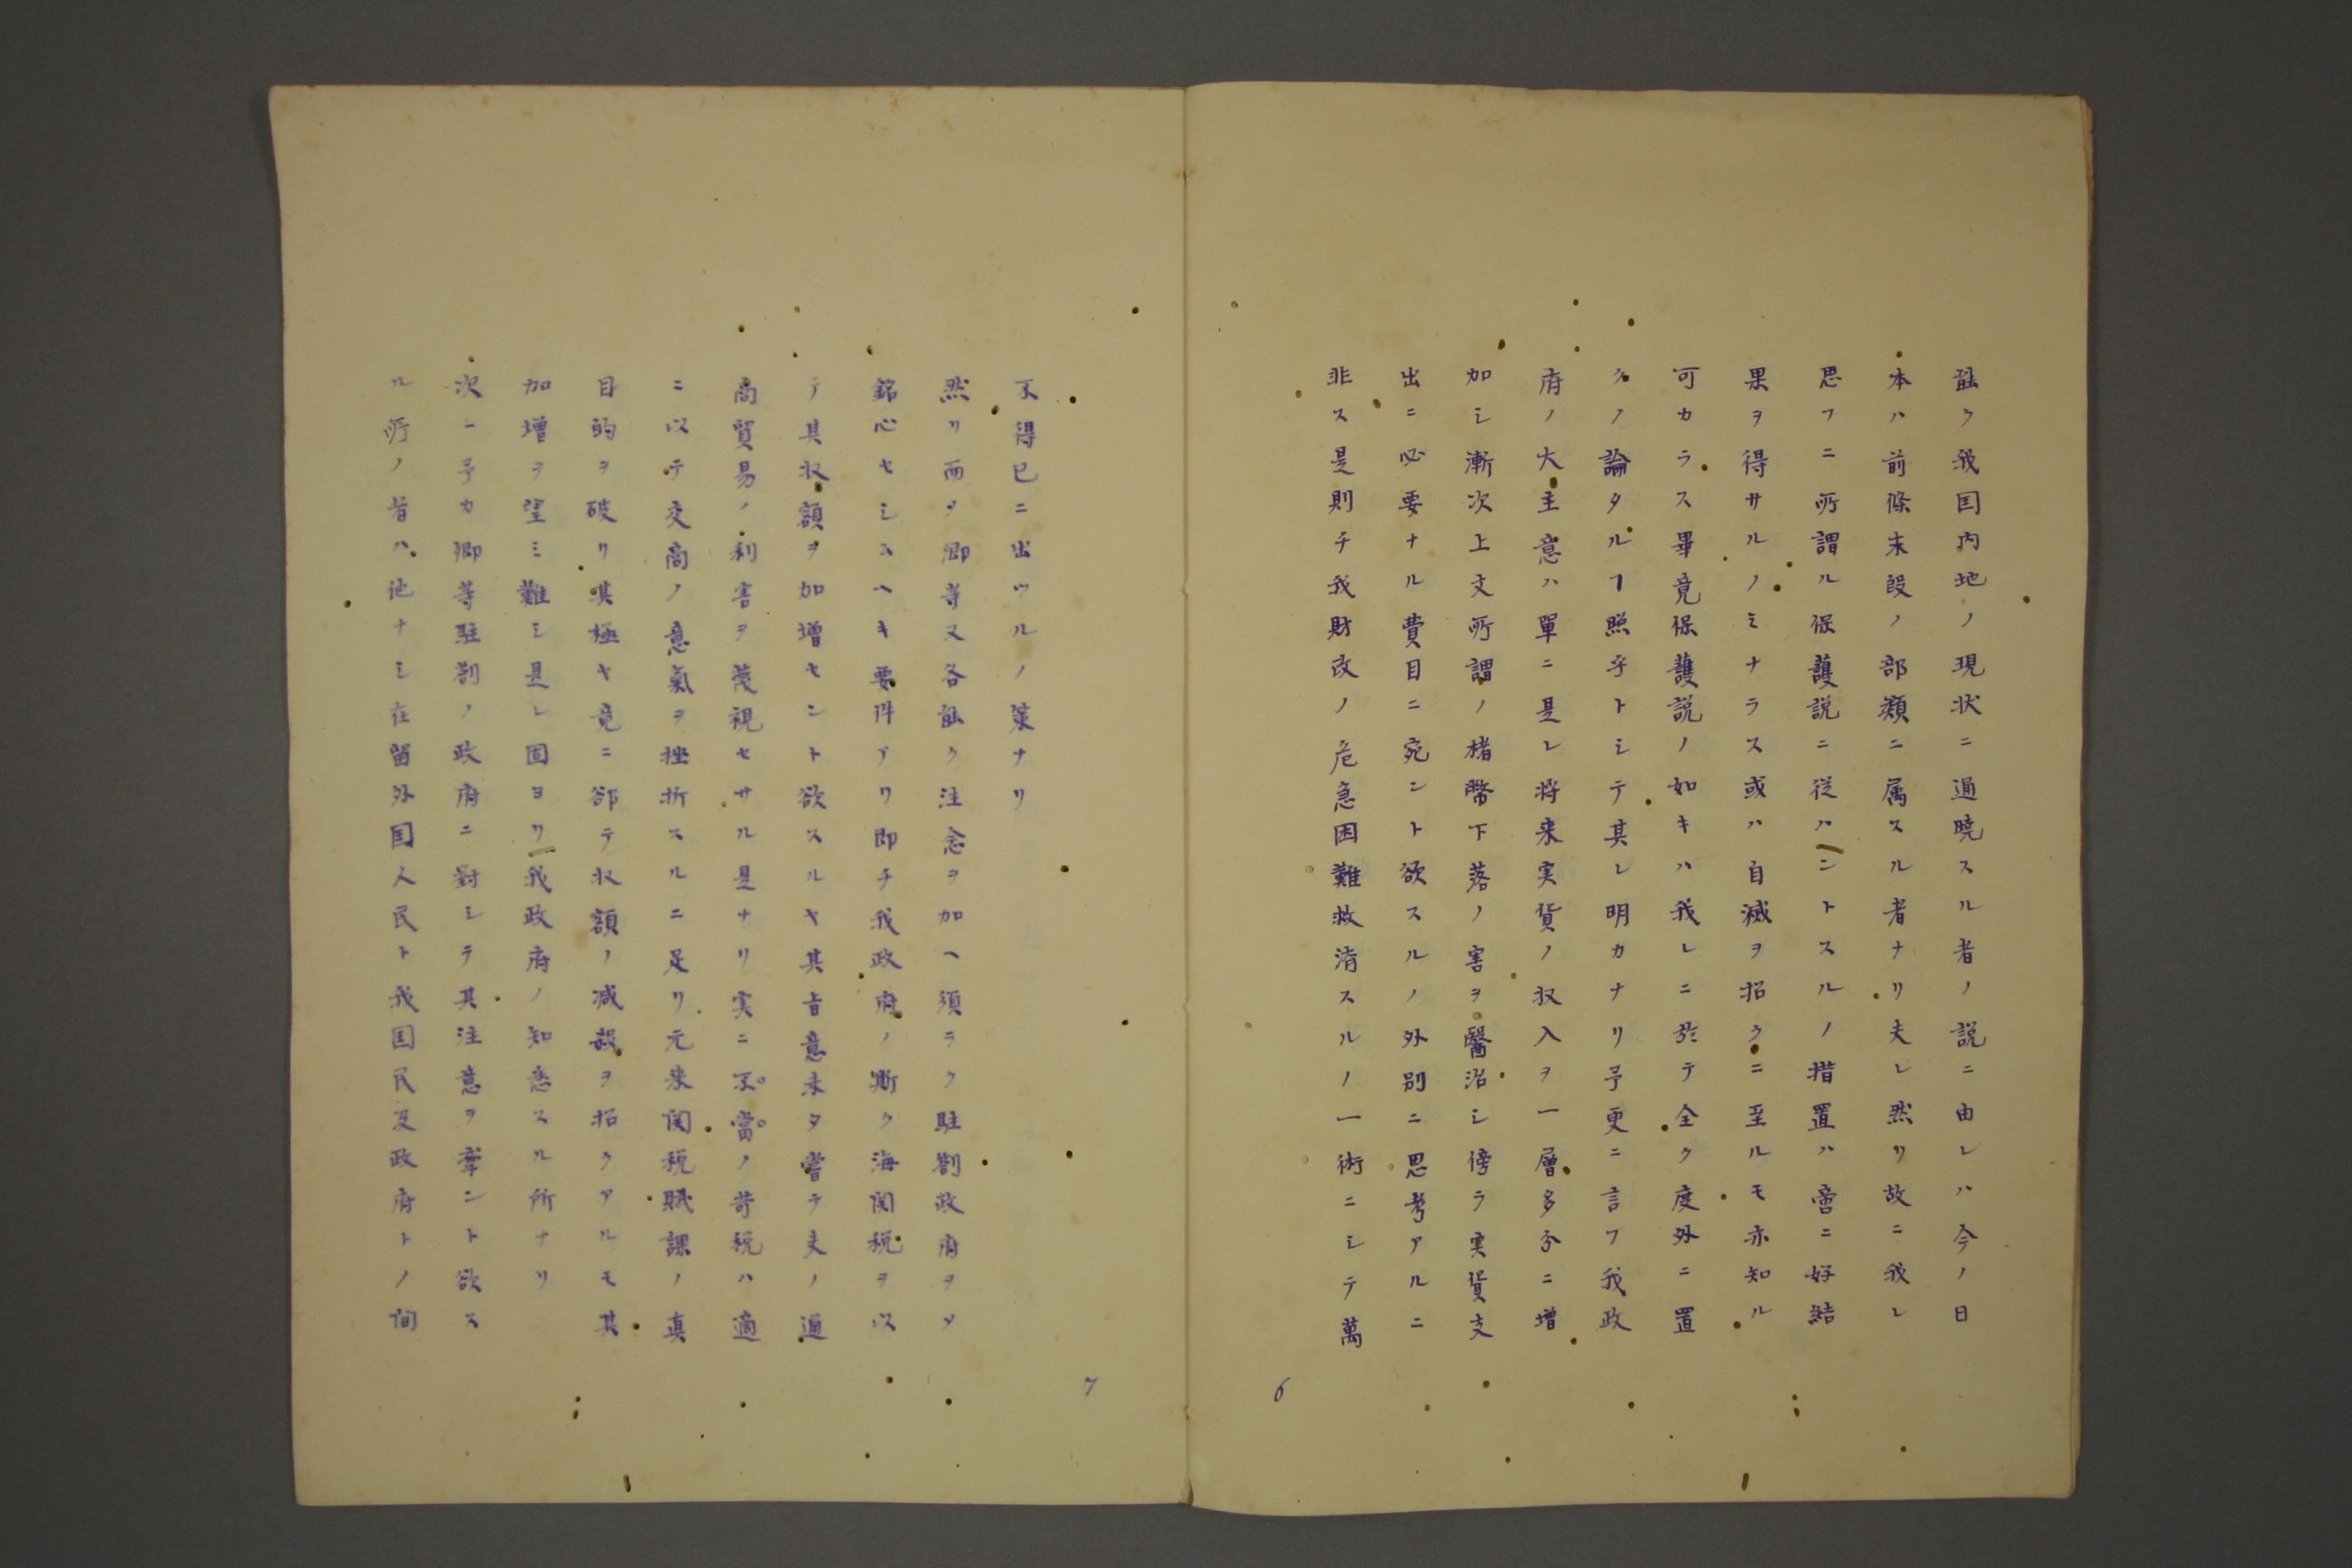 能ク我国内地ノ現状ニ通曉スル者ノ説ニ由レハ今ノ日
本ハ前條末段ノ部類ニ属スル者ナリ夫レ然リ故ニ我レ
思フニ所謂ル保護説ニ従ハントスルノ措置ハ啻ニ好結
果ヲ得サルノミナラス或ハ自滅ヲ招クニ至ルモ亦知ル
可カラス畢竟保護説ノ如キハ我レニ於テ全ク度外ニ置
クノ論タルヿ照乎トシテ其レ明カナリ予更ニ言フ我政
府ノ大主意ハ單ニ是レ将来実貨ノ収入ヲ一層多分ニ増
加シ漸次上文所謂ノ楮幣下落ノ害ヲ醫治シ傍ラ実貨支
出ニ必要ナル費目ニ宛ント欲スルノ外別ニ思考アルニ
非ス是則チ我財政ノ危急困難救済スルノ一術ニシテ萬
6
不得已ニ出ツルノ策ナリ
然リ而〆卿等又各能ク注念ヲ加ヘ須ラク駐劄政府ヲ〆
銘心セシムヘキ要件アリ即チ我政府ノ斯ク海関税ヲ以
テ其収額ヲ加増セント欲スルヤ其旨意未タ嘗テ夫ノ通
商貿易ノ利害ヲ蔑視セサル是ナリ実ニ不當ノ苛税ハ適
ニ以テ交商ノ意氣ヲ挫折スルニ足リ元来関税賦課ノ真
目的ヲ破リ其極ヤ竟ニ郤テ収額ノ减殺ヲ招クアルモ其
加増ヲ望ミ難シ是レ固ヨリ我政府ノ知悉スル所ナリ
次ニ予カ卿等駐劄ノ政府ニ對シテ其注意ヲ牽ント欲ス
ル所ノ者ハ他ナシ在留外国人民ト我国民及政府トノ間
7